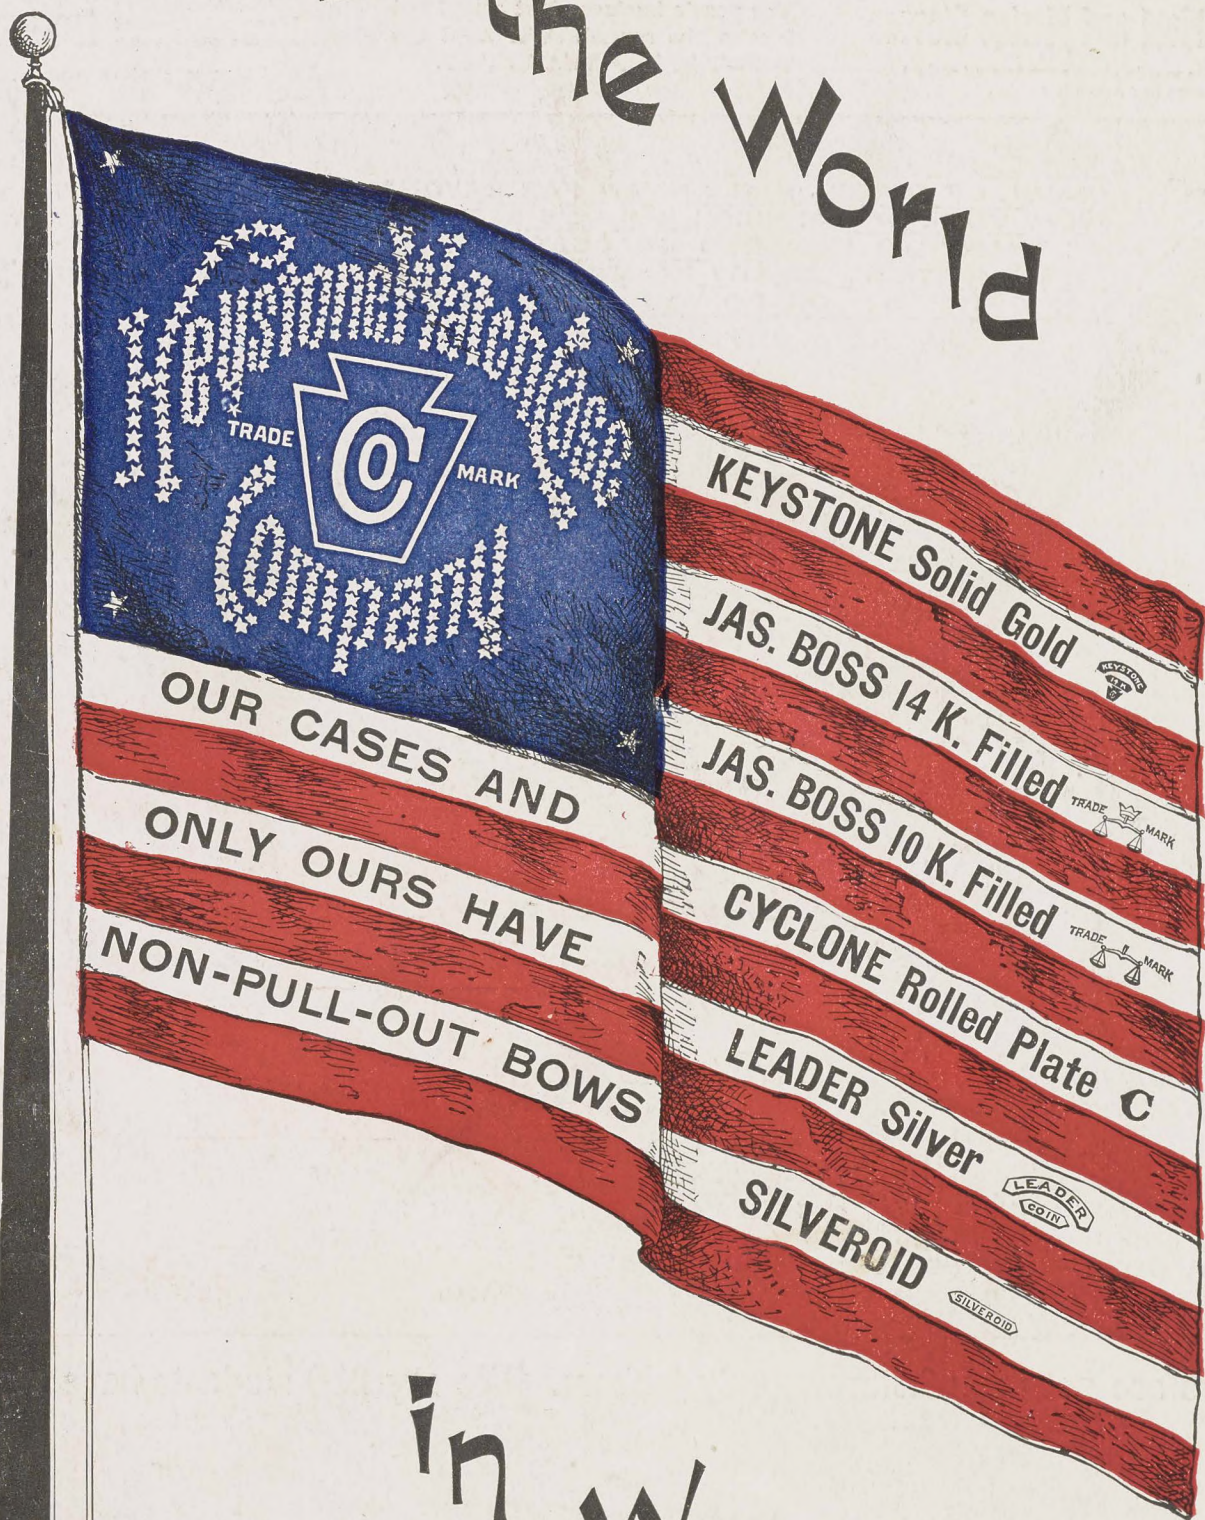 the World
Keystone Watch Case
TRADE
C CO
MARK
Company
OUR CASES AND
ONLY OURS HAVE
NON-PULL-OUT BOWS
KEYSTONE Solid Gold
KEYSTONE
14 K
JAS. BOSS 14 K. Filled
TRADE MARK
JAS. BOSS 10 K. Filled
TRADE MARK
CYCLONE Rolled Plate C
LEADER Silver
LEADER
COIN
SILVEROID
SILVEROID
in